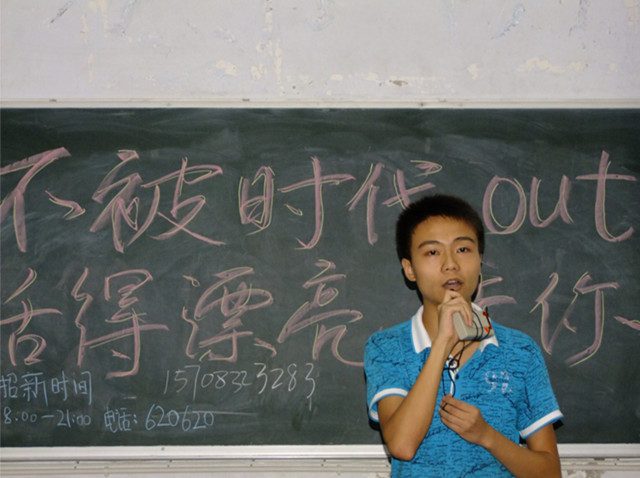 不被时代out
活得漂亮 于你
招新时间 15708323283
8:00—21:00 电话:620620